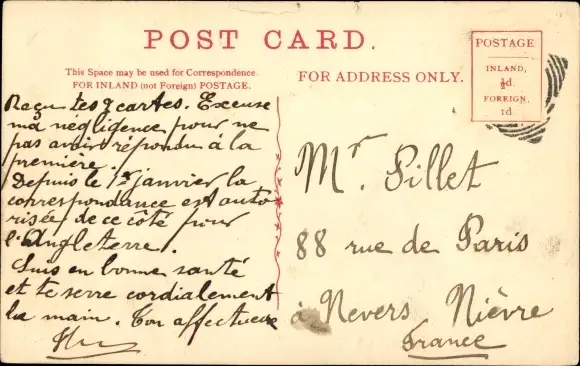 POST CARD.
This Space may be used for Correspondence.
FOR INLAND (not Foreign) POSTAGE.
Reçu tes 2 cartes. Excuse
ma négligence pour ne
pas avoir répondu à la
première.
Depuis le 1er janvier la
correspondance est auto
risée de ce côté pour
l'Angleterre.
Suis en bonne santé
et te serre cordialement
la main. Ton affectueux
FOR ADDRESS ONLY.
POSTAGE
INLAND,
½d.
FOREIGN,
1d
Mr. Pillet
88 rue de Paris
à Nevers. Nièvre
France